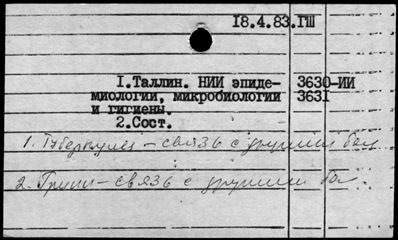 18.4.83.ГШ
1.Таллин. НИИ эпиде- 3630-ИИ
миологии, микробиологии 3631
и гигиены.
2.Сост.
1. Туберкулез – связь с другими бол
2. Грипп – связь с другими бо